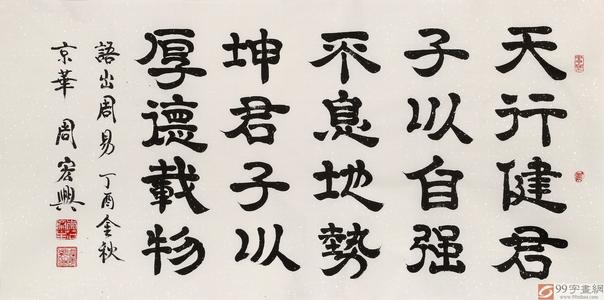 天行健君
子以自强
不息地勢
坤君子以
厚德載物
語出周易 丁酉金秋
京華 周宏興
99字畫網